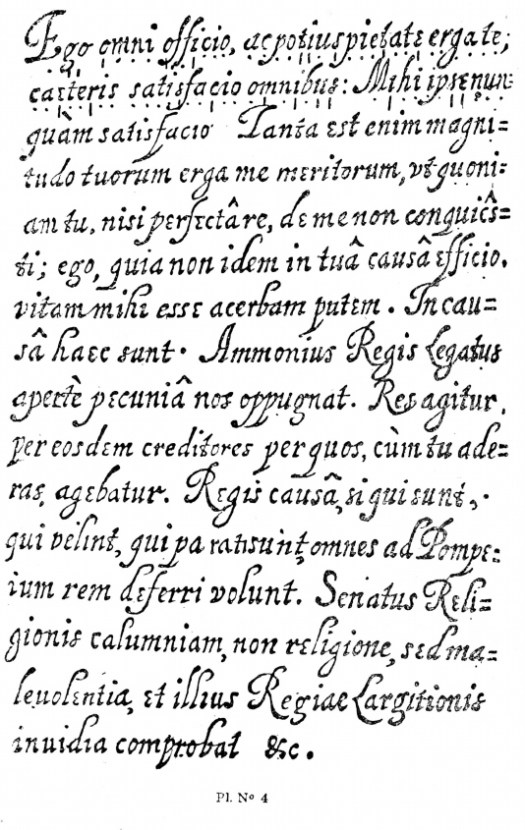 Ego omni officio, ac potius pietate erga te;
caeteris satisfacio omnibus: Mihi ipse nun=
quàm satisfacio Tanta est enim magni=
tudo tuorum erga me meritorum, vt quoni=
am tu, nisi perfectâ re, de me non conquiês=
ti; ego, quia non idem in tuâ causâ efficio.
vitam mihi esse acerbam putem. In cau=
sâ haec sunt. Ammonius Regis Legatus
apertè pecuniâ nos oppugnat. Res agitur,
per eosdem creditores per quos, cùm tu ade=
ras, agebatur. Regis causâ, si qui sunt,.
qui velint, qui pa rati sunt, omnes ad Pompe=
ium rem deferri volunt. Senatus Reli=
gionis calumniam, non religione, sed ma=
levolentia, et illius Regiae Largitionis
invidia comprobat &c.
Pl. Nº 4